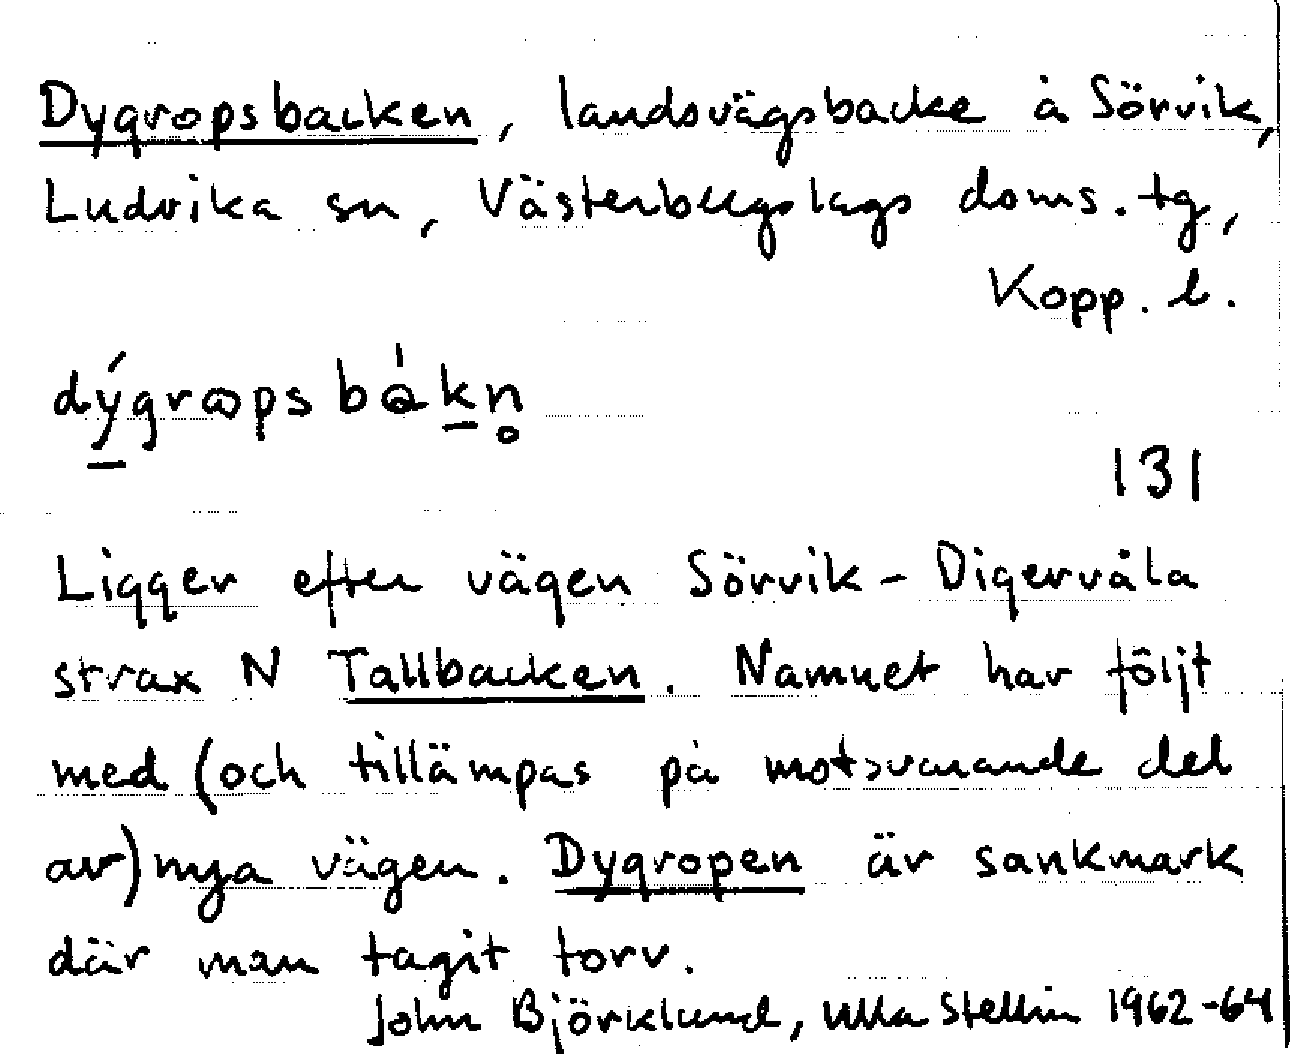 Dygropsbacken, landsvägsbacke å Sörvik,
Ludvika sn, Västerbergslags doms. tg,
Kopp. l.
dýgrops bàkn̥
131
Ligger efter vägen Sörvik - Digervåla
strax N Tallbacken. Namnet har följt
med (och tillämpas på motsvarande del
av) nya vägen. Dygropen är sankmark
där man tagit torv.
John Björklund, Ulla Stellin 1962-64